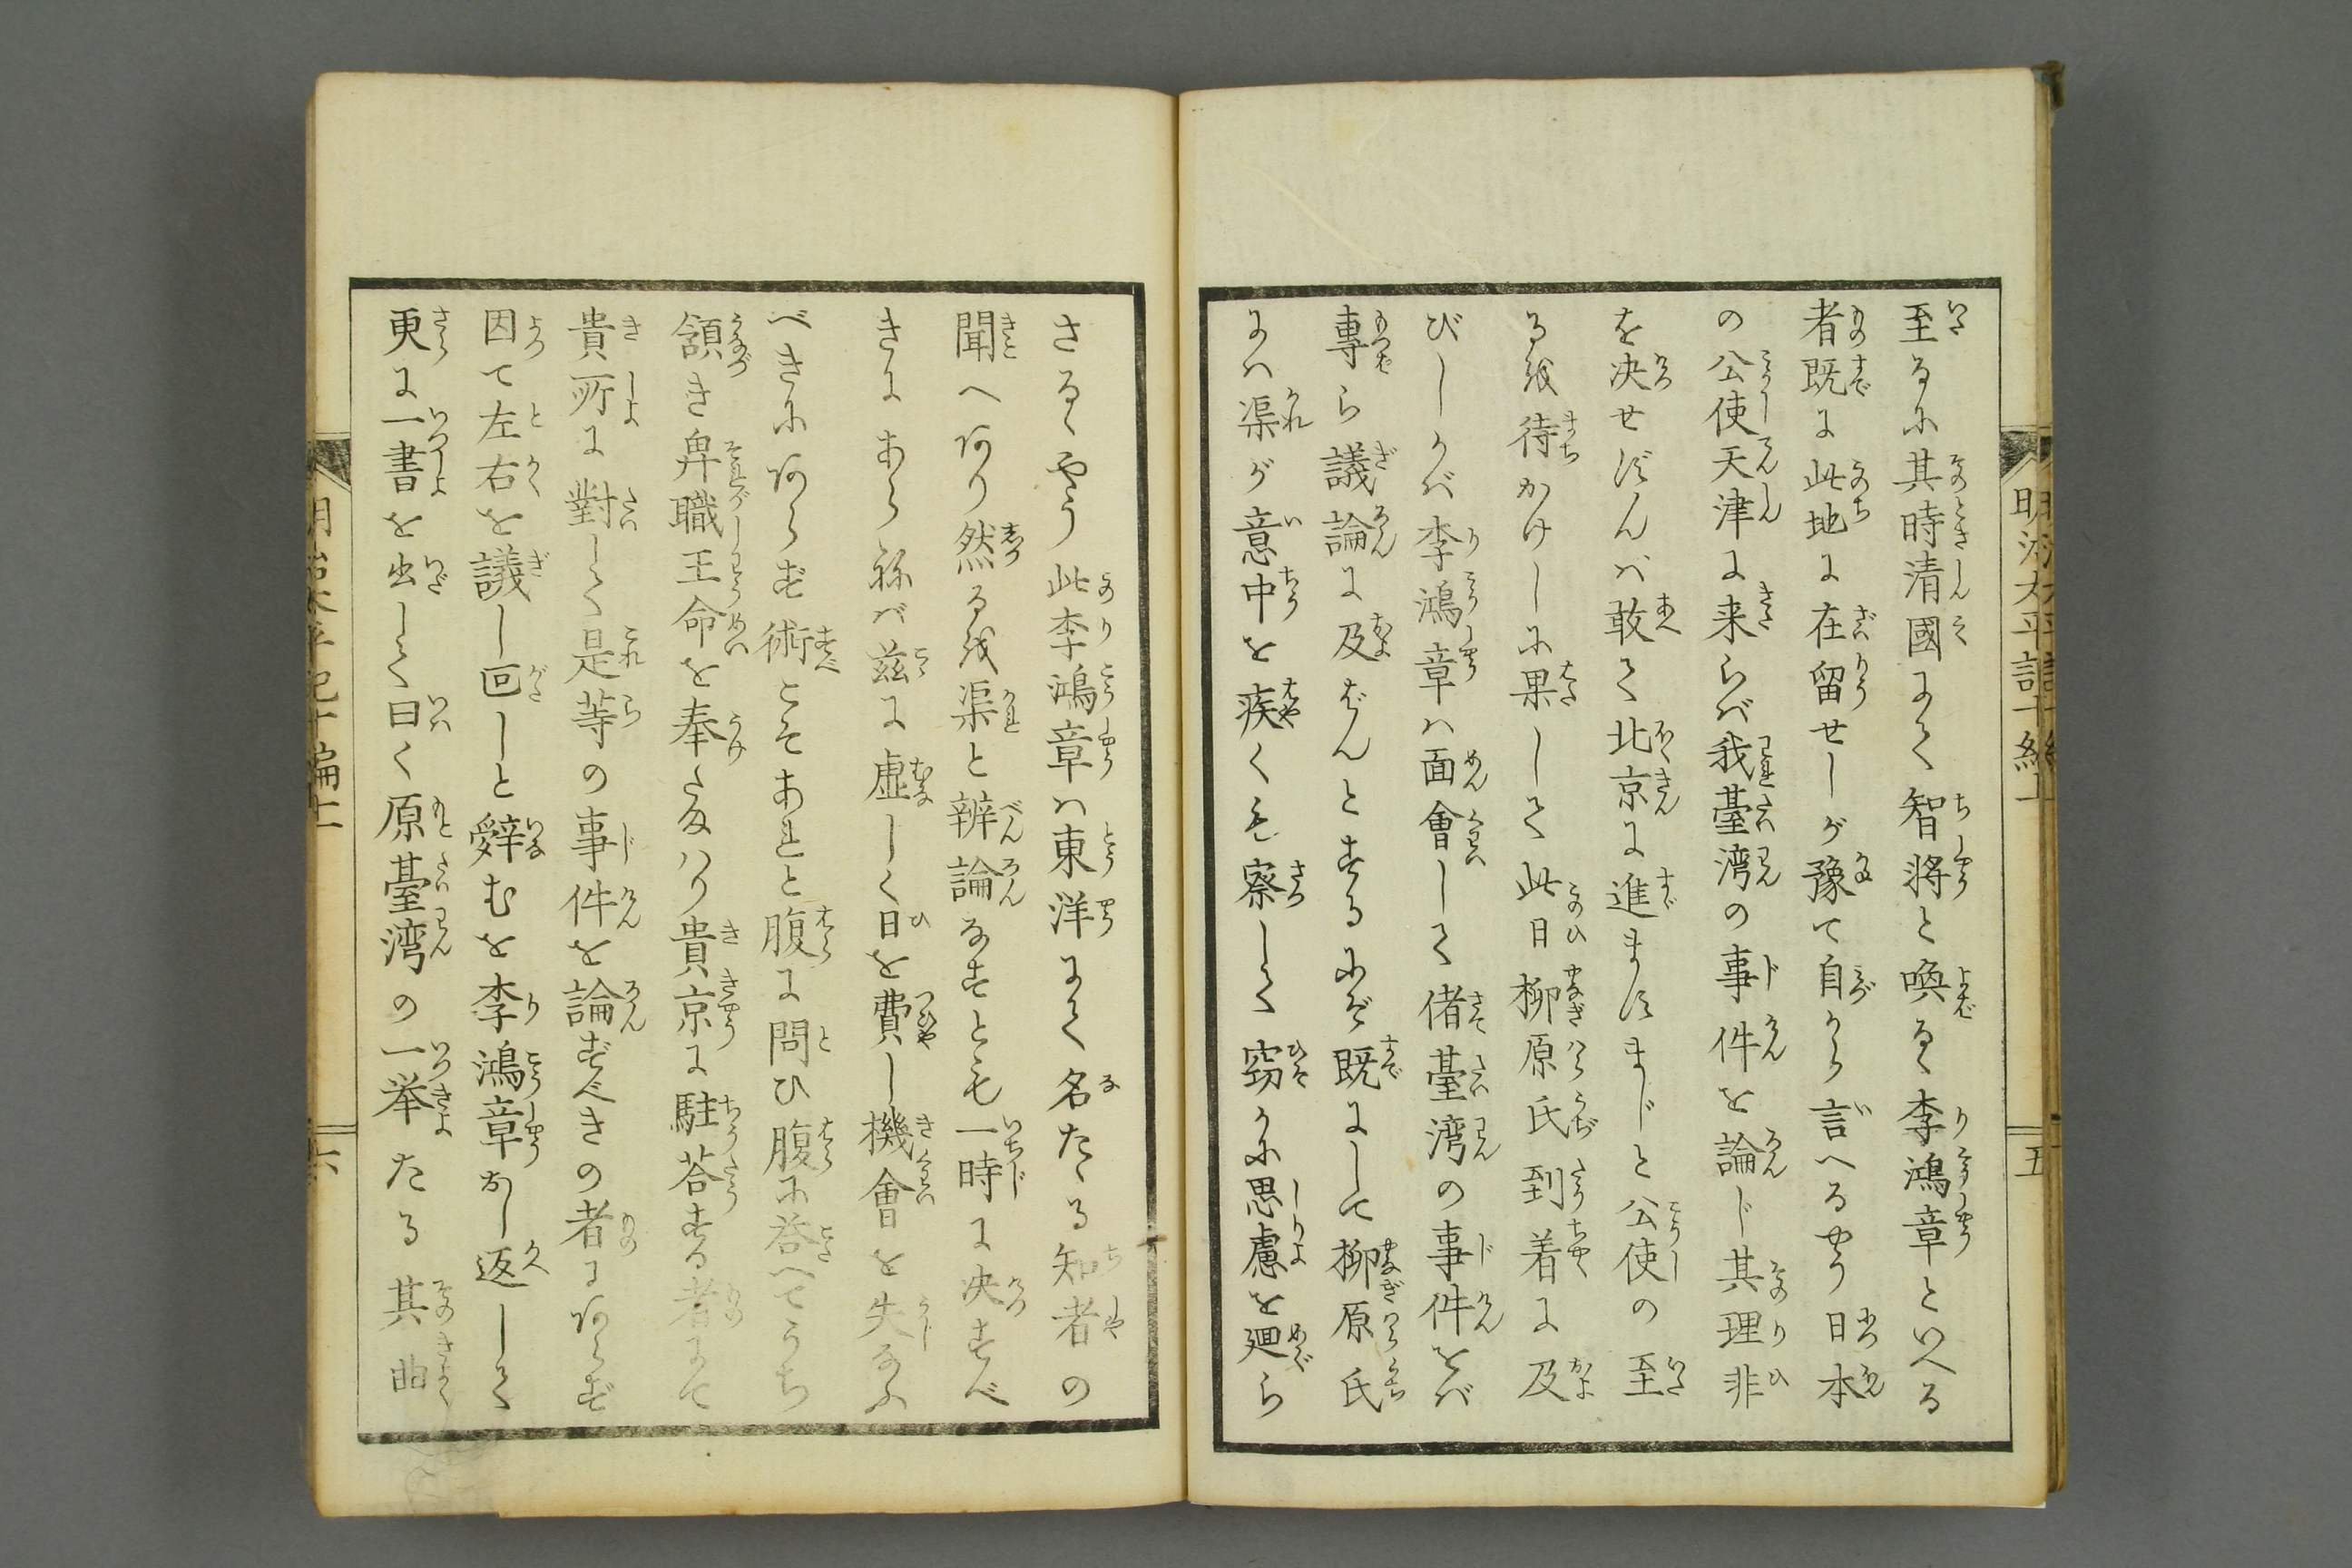 至るに其時清國にて智將と喚るゝ李鴻章といへる
者既に此地に在留せしが豫て自から言へるやう日本
の公使天津に来らば我臺湾の事件を論じ其理非
を决せずんバ敢て北京に進ませまじと公使の至
るを待かけしに果して此日柳原氏到着に及
びしかバ李鴻章ハ面會して偖臺湾の事件をバ
專ら議論に及ばんとするにぞ既にして柳原氏
にハ渠が意中を疾くも察して窃かに思慮を廻ら
さるゝやう此李鴻章ハ東洋にて名たゝる知者の
聞へあり然るを渠と辨論なすとも一時に决すべ
きにあらねバ茲に虚しく日を費し機會を失なふ
べきにあらず術こそあれと腹に問ひ腹に答へてうち
頷き卑職王命を奉たまハり貴京に駐荅する者にて
貴所に對して是等の事件を論ずべきの者にあらず
因て左右を議し回しと辤むを李鴻章おし返して
更に一書を出して曰く原臺湾の一挙たる其曲
明治太平記十編上
五
明治太平記十編上
六